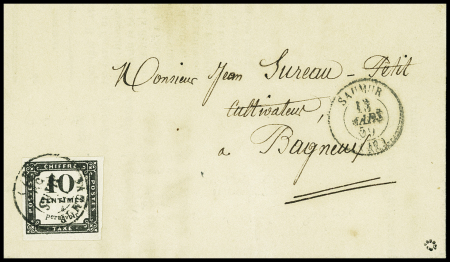 Monsieur Jean Sureau-Petit
Cultivateur,
à Bagneux
SAUMUR
13
MARS
CHIFFRE
POSTES
10
CENTIMES
à
percevoir
POSTES
TAXE